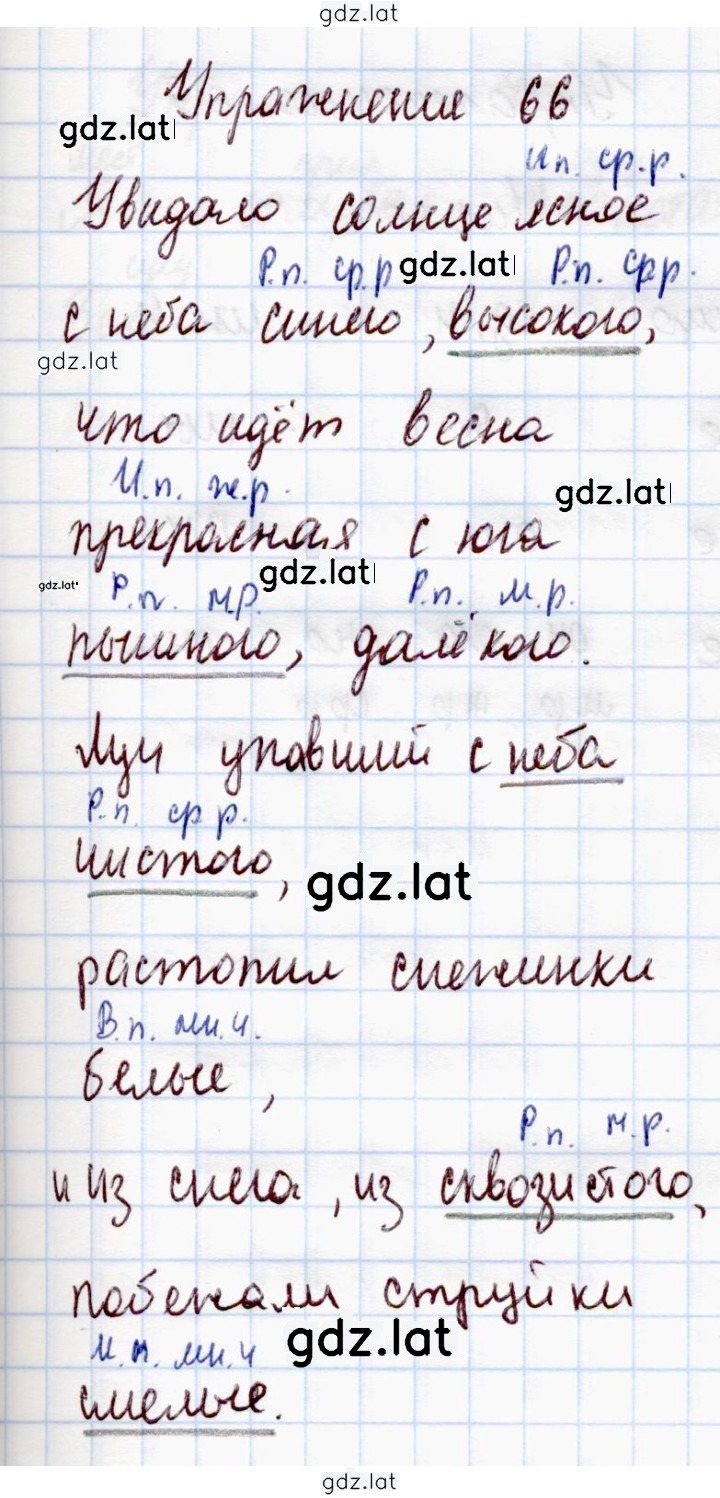 gdz.lat
Упражнение 66
gdz.lat
И.п. ср.р.
Увидало солнце ясное
Р.п. ср.р gdz.lat Р.п. ср.р.
с неба синего, высокого,
gdz.lat
что идёт весна
И.п. ж.р. gdz.lat
прекрасная с юга
gdz.lat Р.п. м.р. gdz.lat Р.п. м.р.
пышного, далёкого.
Луч упавший с неба
Р.п. ср.р.
чистого, gdz.lat
растопил снежинки
В.п. мн.ч.
белые,
Р.п. м.р.
и из снега, из сквозистого,
побежали струйки
И.п. мн.ч gdz.lat
смелые.
gdz.lat